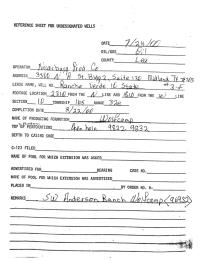 REFERENCE SHEET FOR UNDESIGNATED WELLS
DATE 7/24/00
OIL/GAS Oil
COUNTY Lea
OPERATOR Nearburg Prod Co
ADDRESS 3300 N "A" St. Bldg 2, Suite 120 Midland, Tx 79705
LEASE NAME, WELL NO. Rancho Verde 10 State #3-F
FOOTAGE LOCATION 2310 FROM THE N LINE AND FROM THE W LINE
SECTION 10 TOWNSHIP 16S RANGE 32e
COMPLETION DATE 3/22/00
NAME OF PRODUCING FORMATION Wolfcamp
TOP OF PERFORATIONS Open hole 9822 9832
DEPTH TO CASING SHOE
C-123 FILED
NAME OF POOL FOR WHICH EXTENSION WAS ASKED
ADVERTISED FOR HEARING CASE NO.
NAME OF POOL FOR WHICH EXTENSION WAS ADVERTISED
PLACED IN BY ORDER NO. R-
REMARKS SW Anderson Ranch Wolfcamp